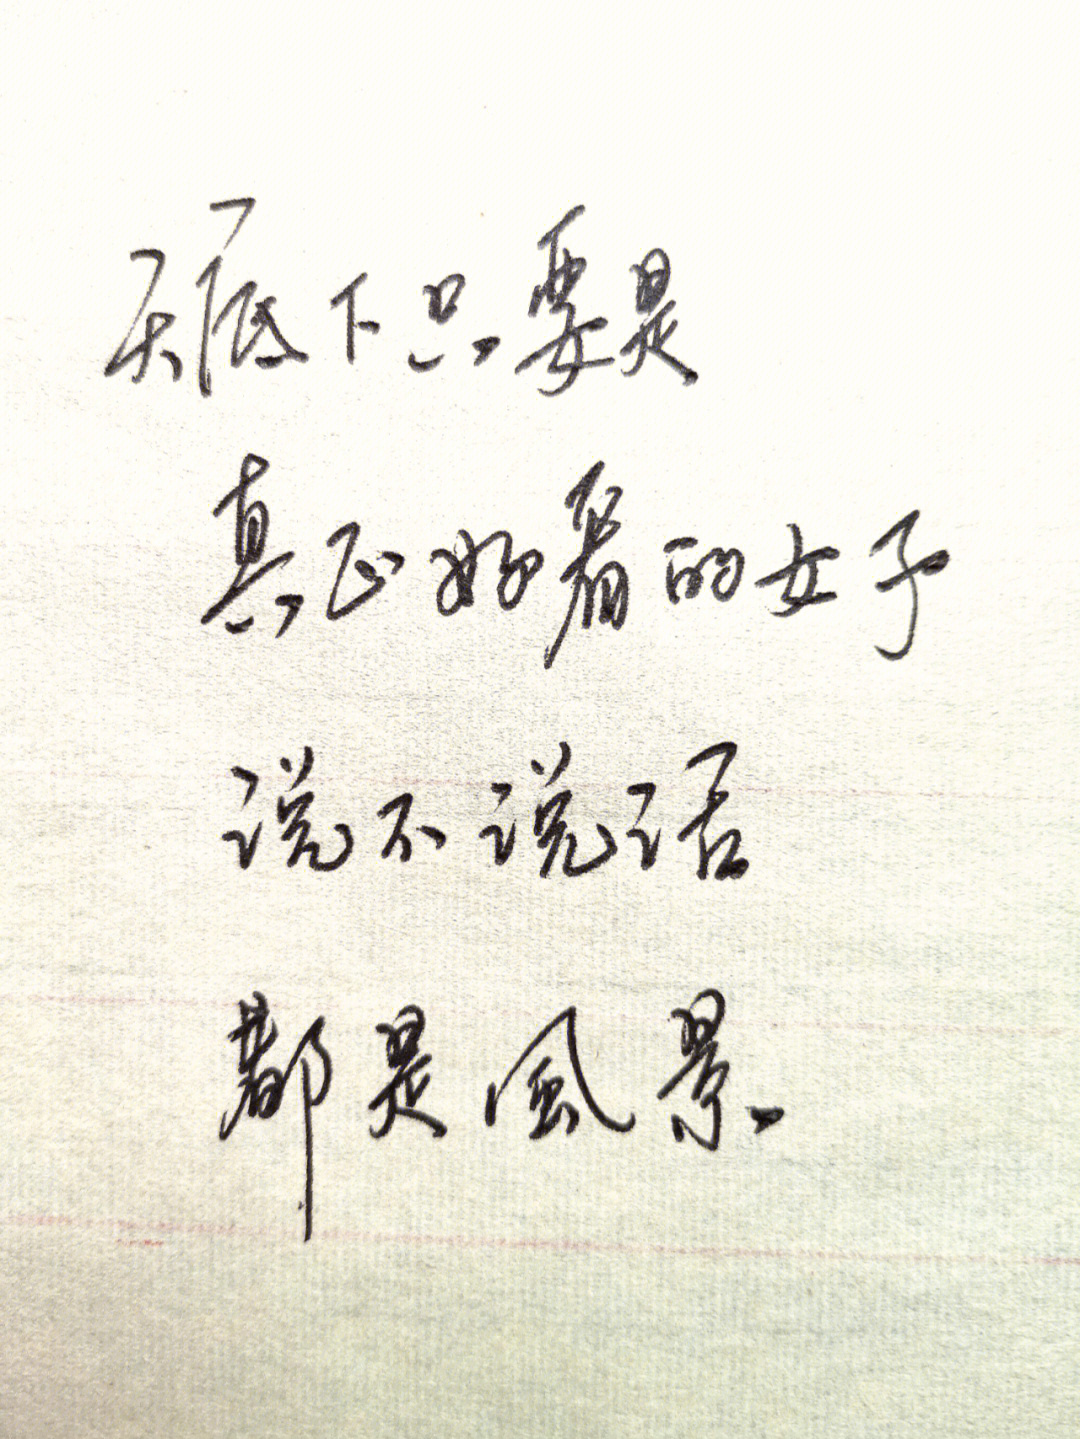 天底下只要是
真正好看的女子
说不说话
都是風景